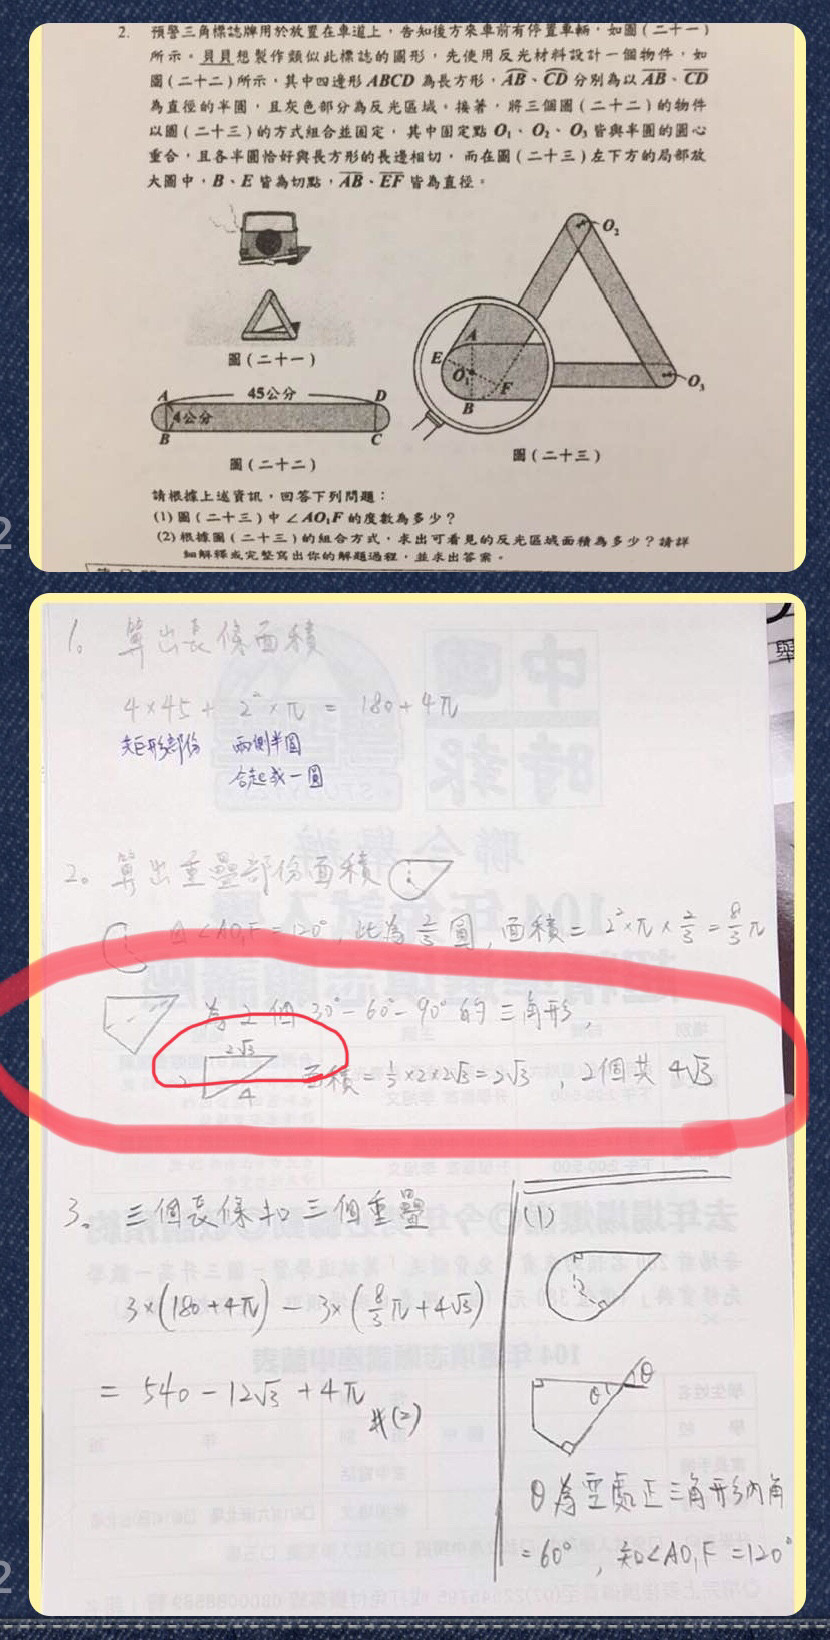 2. 預警三角標誌牌用於放置在車道上，告知後方來車前有停置車輛，如圖(二十一)
所示。貝貝想製作類似此標誌的圖形，先使用反光材料設計一個物件，如
圖(二十二)所示，其中四邊形ABCD為長方形，AB、CD分別為以AB、CD
為直徑的半圓，且灰色部分為反光區域。接著，將三個圖(二十二)的物件
以圖(二十三)的方式組合並固定，其中固定點O₁、O₂、O₃皆與半圓的圓心
重合，且各半圓恰好與長方形的長邊相切，而在圖(二十三)左下方的局部放
大圖中，B、E皆為切點，AB、EF皆為直徑。
O₂
A
E
O₁
F
B
O₃
圖(二十一)
A 45公分 D
4公分
B C
圖(二十二)
圖(二十三)
請根據上述資訊，回答下列問題：
(1)圖(二十三)中∠AO₁F的度數為多少？
(2)根據圖(二十三)的組合方式，求出可看見的反光區域面積為多少？請詳
細解釋或完整寫出你的解題過程，並求出答案。
1。算出長條面積
4×45 + 2²×π = 180+4π
矩形部份 兩側半圓
合起成一圓
2。算出重疊部份面積
∠AO₁F=120°, 此為2/3圓, 面積=2²×π×2/3=8/3π
為2個30°-60°-90°的三角形,
2√3
2
4
面積=1/2×2×2√3=2√3, 2個共4√3
3。三個長條扣三個重疊
3×(180+4π) - 3×(8/3π+4√3)
= 540-12√3+4π
#(2)
(1)
θ
θ
θ為空處正三角形內角
=60°, 知∠AO₁F=120°